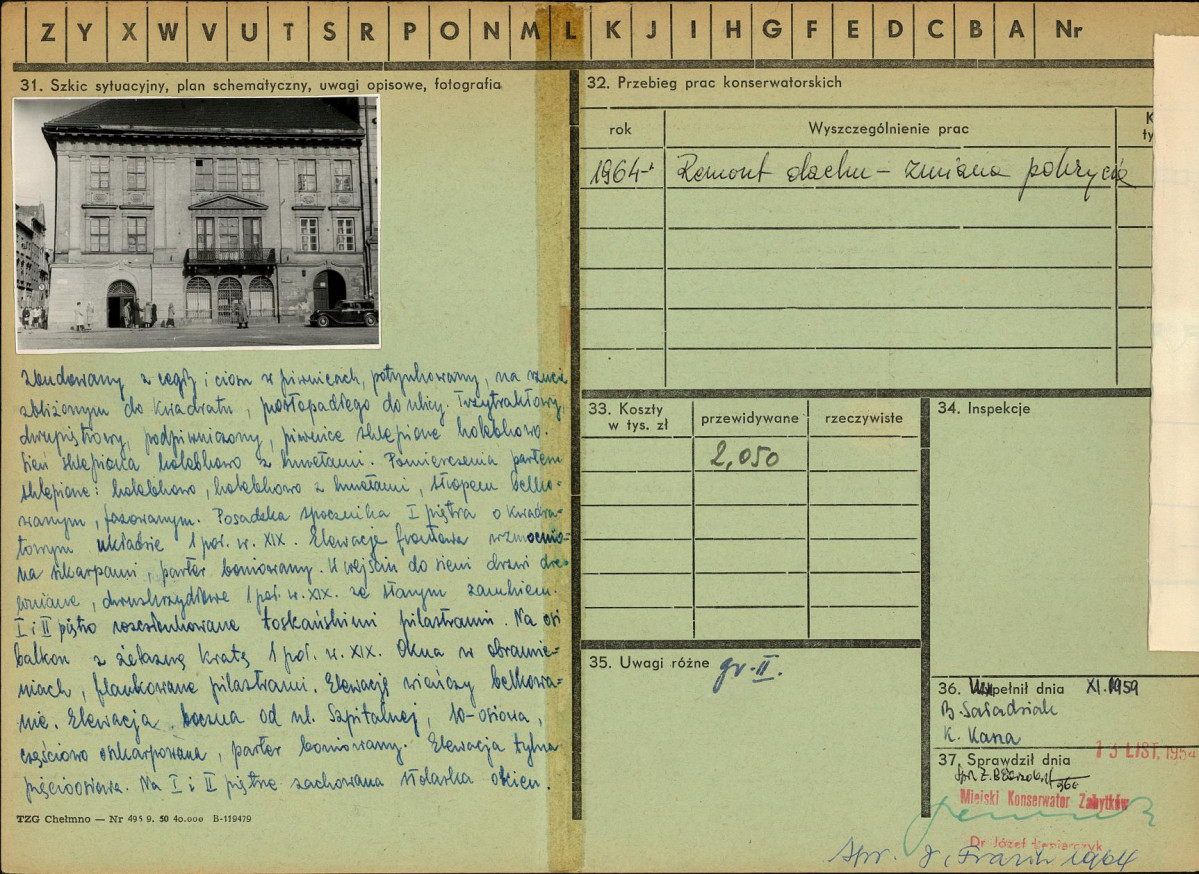 Z Y X W V U T S R P O N M L K J I H G F E D C B A Nr
31. Szkic sytuacyjny, plan schematyczny, uwagi opisowe, fotografia
Zbudowany z cegły i ciosu w piwnicach, potynkowany, na rzucie
zbliżonym do kwadratu, prostopadłego do ulicy. Trzytraktowy,
dwupiętrowy, podpiwniczony, piwnice sklepione kolebkowo.
Sień sklepiona kolebkowo z lunetami. Pomieszczenia parteru
sklepione: kolebkowo, kolebkowo z lunetami, stropem belko-
wanym, fazowanym. Posadzka spocznika I piętra o kwadra-
towym układzie 1 poł. w. XIX. Elewacja frontowa wzmocnio-
na skarpami, parter boniowany. U wejścia do sieni drzwi dre-
wniane, dwuskrzydłowe 1 poł. w. XIX. ze starym zamkiem.
I i II piętro rozczłonkowane toskańskimi pilastrami. Na osi
balkon z żelazną kratą 1 poł. w. XIX. Okna w obramie-
niach, flankowane pilastrami. Elewację wieńczy belkowa-
nie. Elewacja boczna od ul. Szpitalnej, 10-osiowa,
częściowo oskarpowana, parter boniowany. Elewacja tylna
pięcioosiowa. Na I i II piętrze zachowana stolarka okien.
TZG Chełmno — Nr 495 9. 50 40.000 B-119479
32. Przebieg prac konserwatorskich
rok Wyszczególnienie prac K
ty
1964 Remont dachu – zmiana pokrycia
33. Koszty
w tys. zł przewidywane rzeczywiste
2,050
34. Inspekcje
35. Uwagi różne gr-II.
36. Wypełnił dnia XI.1959
B. Sasadziak
K. Kana
13 LIST. 195
37. Sprawdził dnia
Miejski Konserwator Zabytków
Dr Józef
Spr. J. 1964